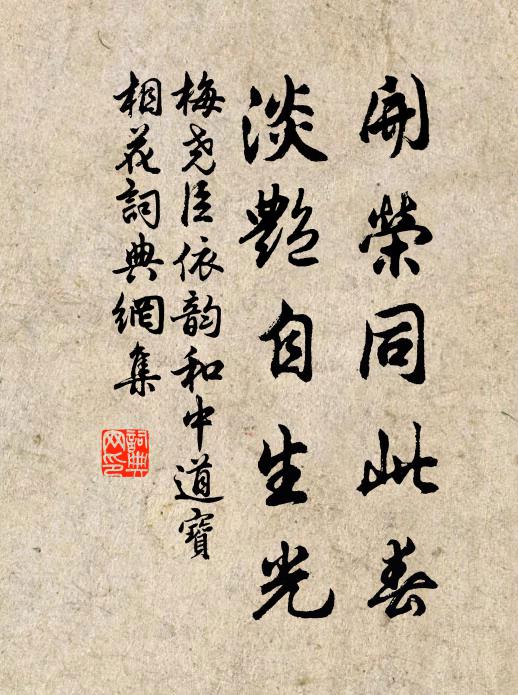 開榮同此春
淡艷自生光
梅堯臣依韵和中道寶
相花詞典網集
詞典
网印